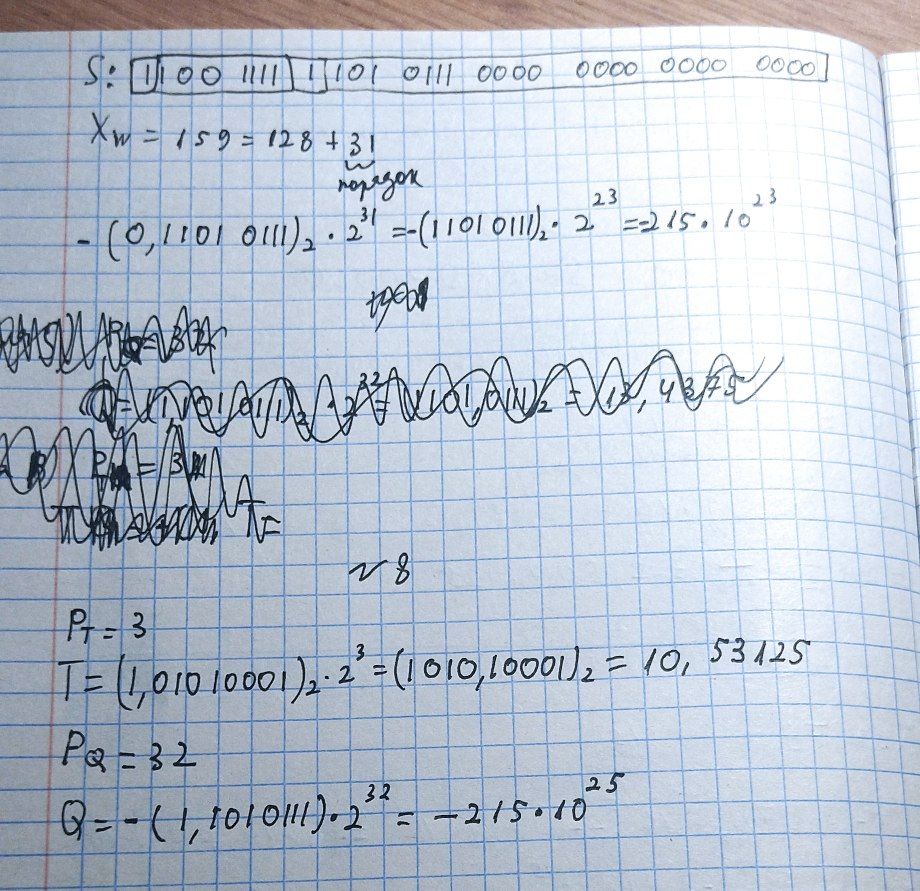 S: 1 100 1111 1 101 0111 0000 0000 0000 0000
Xw = 159 = 128 + 31
порядок
- (0,1101 0111)₂ · 2³¹ = -(1101 0111)₂ · 2²³ = -215 · 10²³
Q = (1,1010111)₂ · 2³² = (1101,0111)₂ = 13,4375
T =
№ 8
P_T = 3
T = (1,01010001)₂ · 2³ = (1010,10001)₂ = 10, 53125
P_Q = 32
Q = - (1,1010111) · 2³² = - 215 · 10²⁵